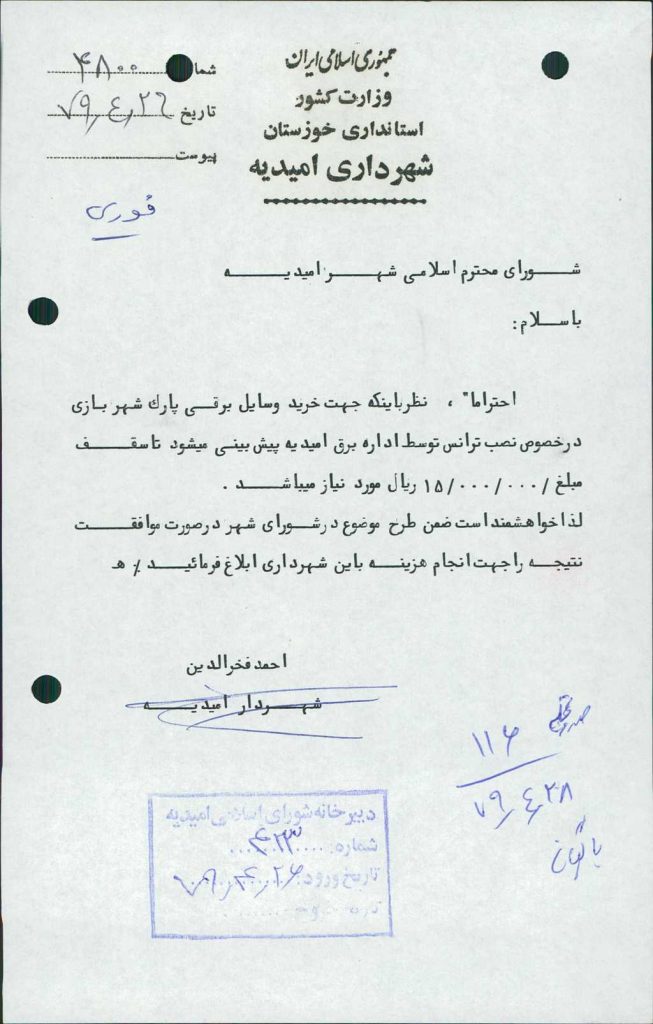 جمهوری اسلامی ایران
وزارت کشور
استانداری خوزستان
شهرداری امیدیه
شما ۴۸۰۰
تاریخ ۷۹,۴,۲۶
پیوست
فوری
شورای محترم اسلامی شهر امیدیه
باسلام:
احتراما"، نظرباینکه جهت خرید وسایل برقی پارك شهر بازی
درخصوص نصب ترانس توسط اداره برق امیدیه پیش بینی میشود تاسقف
مبلغ /۱۵/۰۰۰/۰۰۰ ریال مورد نیاز میباشد .
لذاخواهشمند است ضمن طرح موضوع درشورای شهر درصورت موافقت
نتیجه را جهت انجام هزینه باین شهرداری ابلاغ فرمائید ٪ ه
احمد فخرالدین
شهردار امیدیه
۱۱۶
۷۹,۴,۲۸
دبیرخانه شورای اسلامی امیدیه
شماره:
تاریخ ورود: